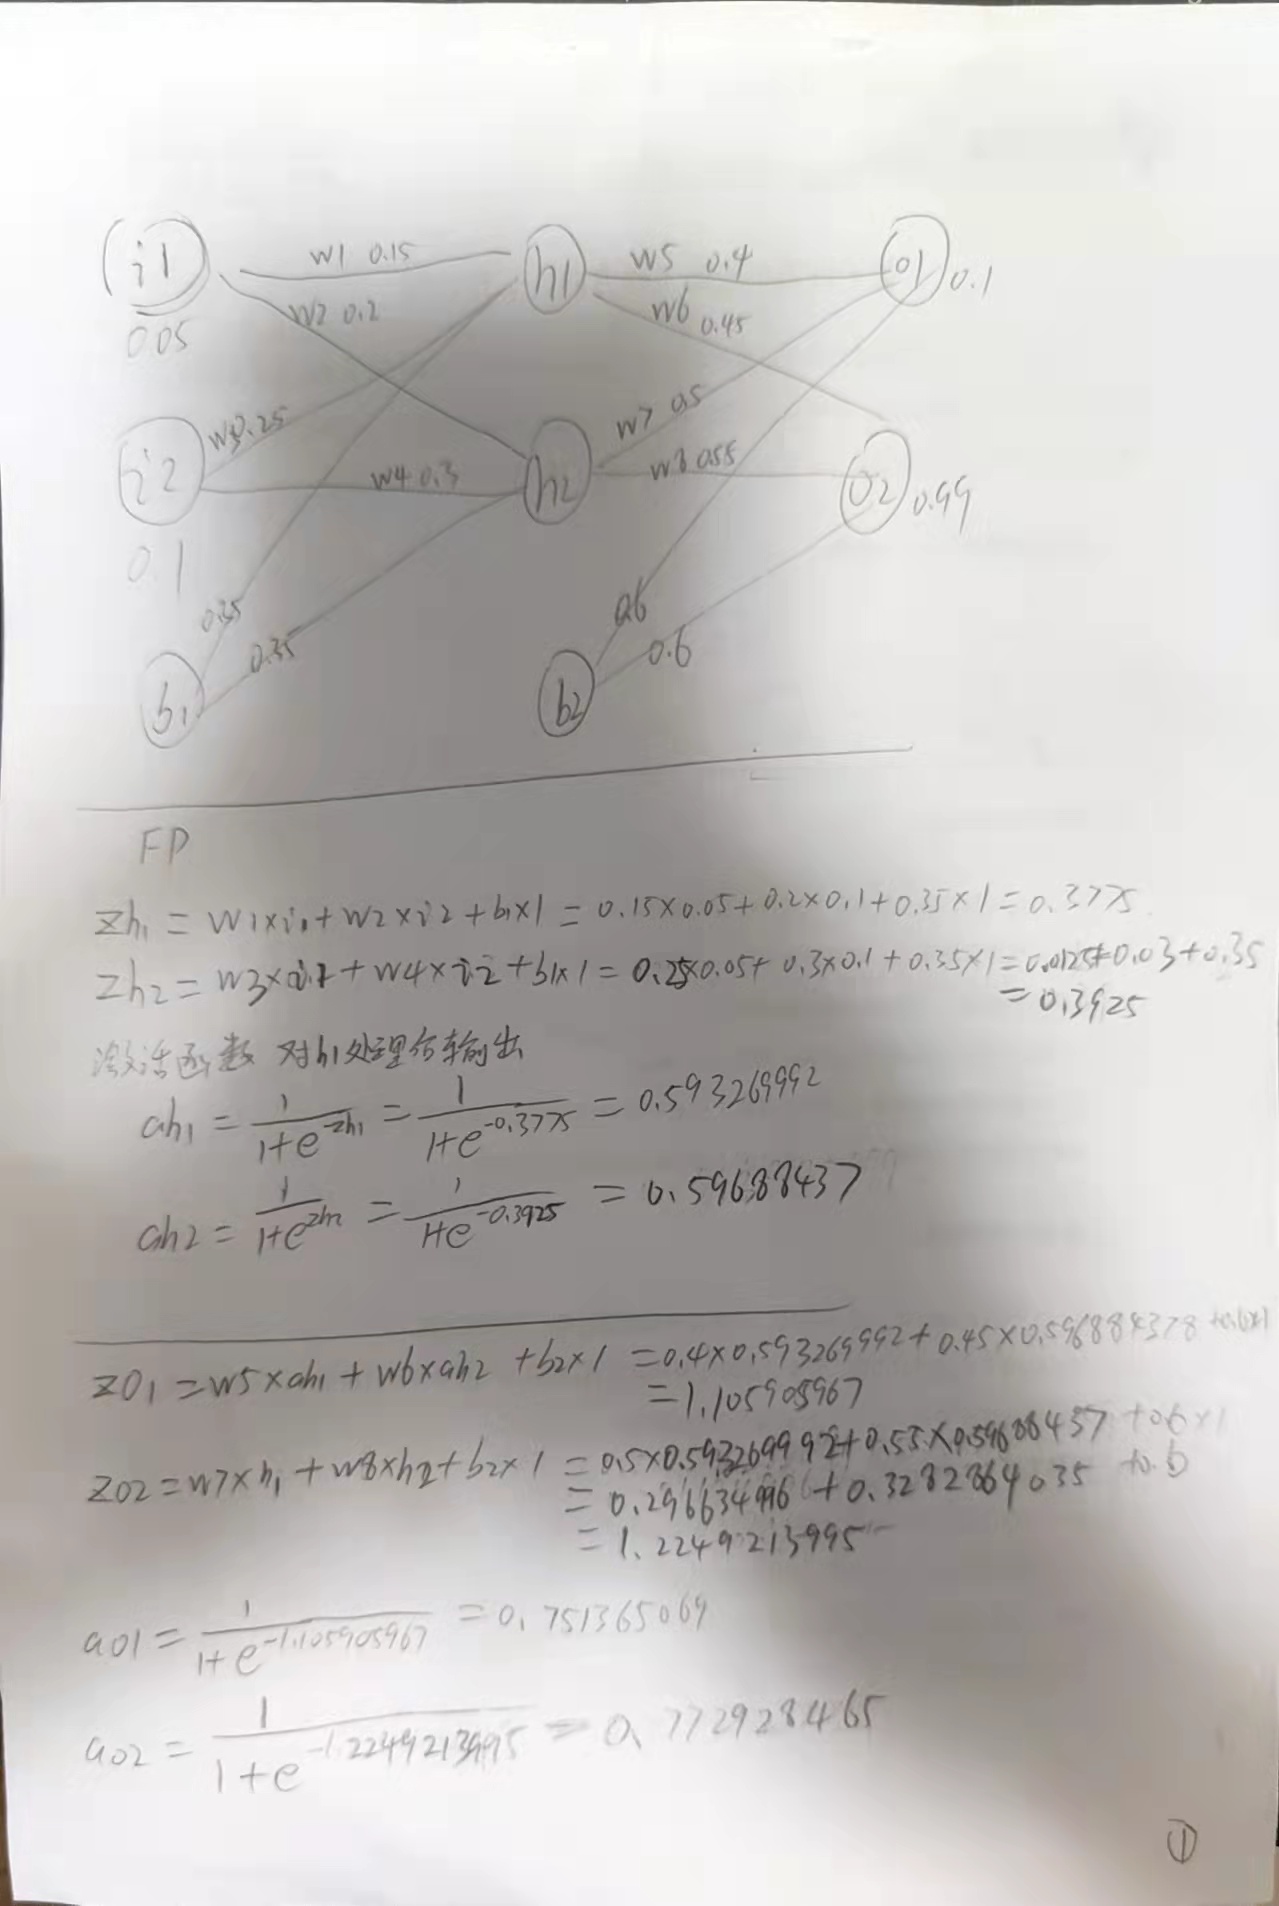 i1 w1 0.15 h1 w5 0.4 o1 0.1
0.05 w2 0.2 w6 0.45
w3 0.25 w7 0.5
i2 w4 0.3 h2 w8 0.55 o2 0.99
0.1
0.35 0.6
0.35 0.6
b1 b2
FP
zh₁ = w1×i₁ + w2×i2 + b1×1 = 0.15×0.05 + 0.2×0.1 + 0.35×1 = 0.3775
zh2 = w3×i1 + w4×i2 + b1×1 = 0.25×0.05 + 0.3×0.1 + 0.35×1 = 0.0125 + 0.03 + 0.35
= 0.3925
激活函数 对h1处理后输出
ah₁ = 1/(1+e^-zh₁) = 1/(1+e^-0.3775) = 0.593269992
ah2 = 1/(1+e^zh2) = 1/(1+e^-0.3925) = 0.59688437
zo₁ = w5×ah₁ + w6×ah2 + b2×1 = 0.4×0.593269992 + 0.45×0.596884378 + 0.6×1
= 1.105905967
zo2 = w7×h₁ + w8×h2 + b2×1 = 0.5×0.593269992 + 0.55×0.59688437 + 0.6×1
= 0.296634996 + 0.3282864035 + 0.6
= 1.2249213995
ao1 = 1/(1+e^-1.105905967) = 0.751365069
ao2 = 1/(1+e^-1.2249213995) = 0.772928465
①